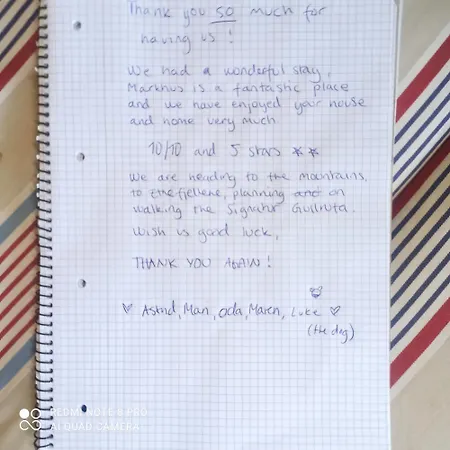 Thank you SO much for
having us!
We had a wonderful stay,
Markhus is a fantastic place
and we have enjoyed your house
and home very much
10/10 and 5 stars **
We are heading to the mountains,
to Etnefjellene, planning on
walking the Signatur Gullruta.
Wish us good luck,
THANK YOU AGAIN!
♡ Astrid, Mari, Oda, Maren, Luke ♡
(the dog)
REDMI NOTE 8 PRO
AI QUAD CAMERA